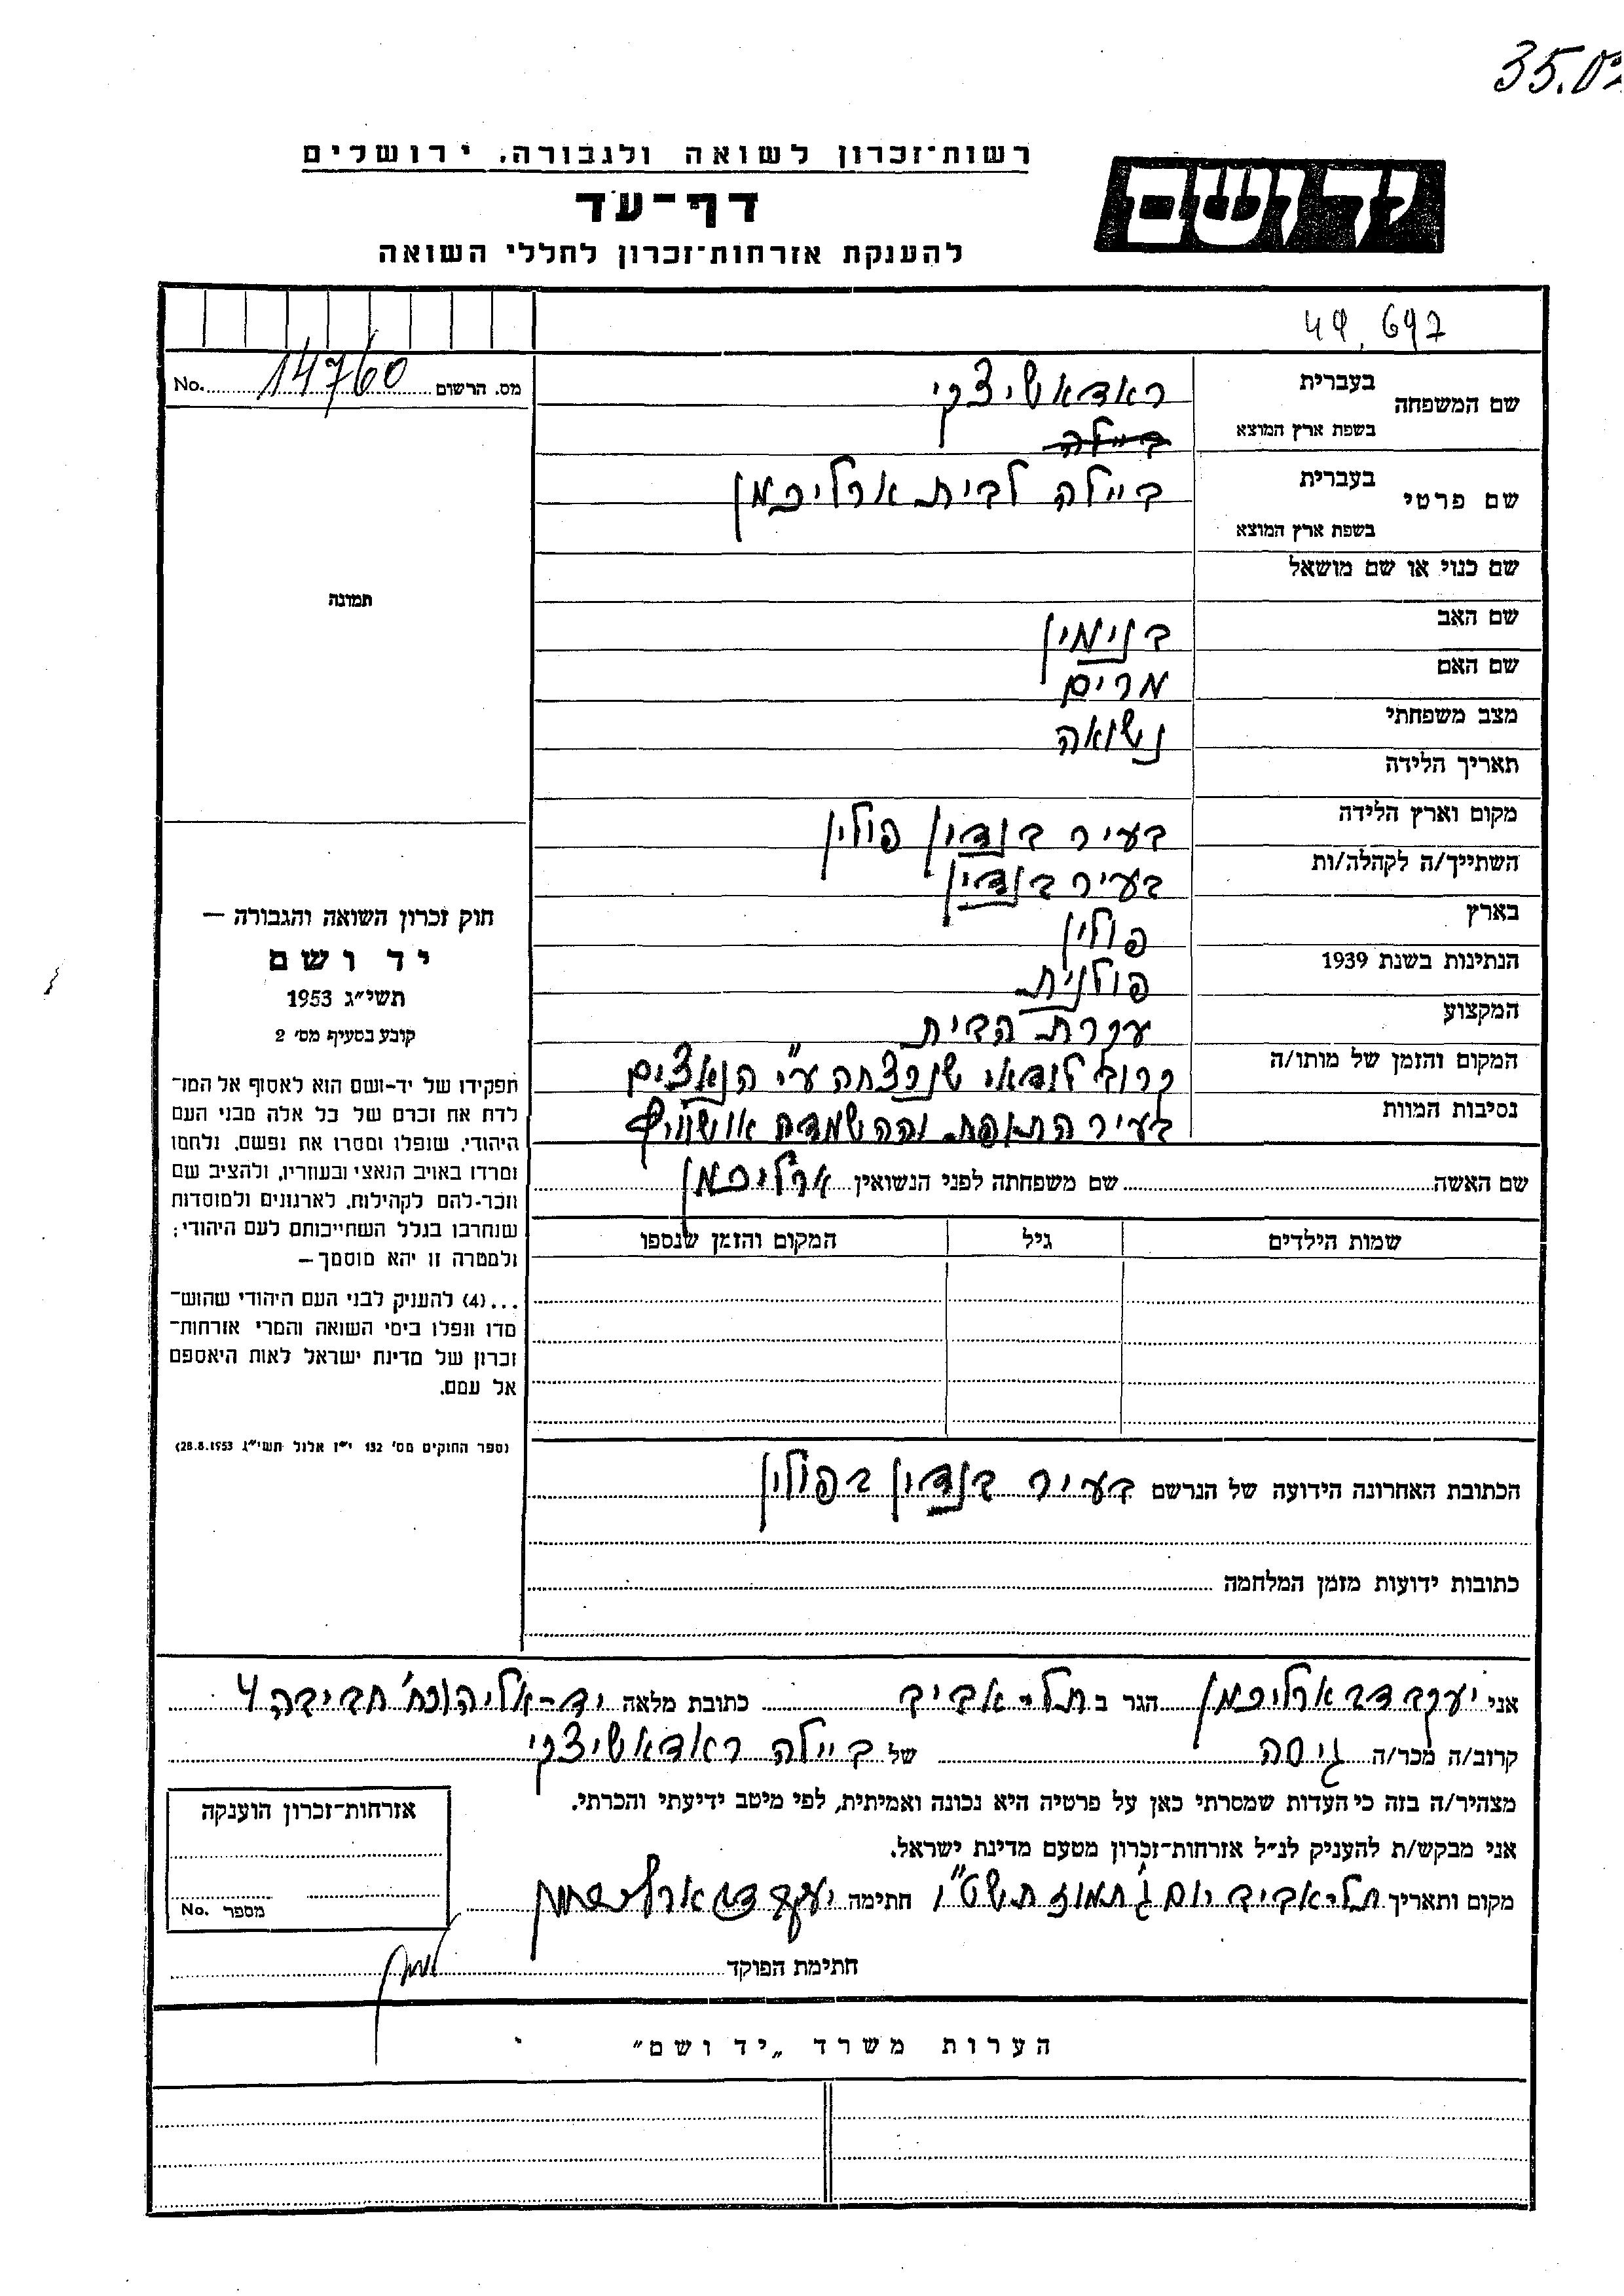 רשות־זכרון לשואה ולגבורה, ירושלים
יד ושם
דף־עד
להענקת אזרחות־זכרון לחללי השואה
49,697
מס. הרשום 14760 No.
שם המשפחה
בעברית ראדאשיצקי
בשפת ארץ המוצא ביילה
שם פרטי
בעברית ביילה לבית ארליכמן
בשפת ארץ המוצא
שם כנוי או שם מושאל
שם האב בנימין
שם האם מרים
מצב משפחתי נשואה
תאריך הלידה
מקום וארץ הלידה בעיר בנדין פולין
השתייך/ה לקהלה/ות בעיר בנדין
בארץ פולין
הנתינות בשנת 1939 פולנית
המקצוע עקרת הבית
המקום והזמן של מותו/ה קרוב לודאי שנרצחה ע״י הנאצים
נסיבות המוות בעיר התופת וההשמדה אושוויץ
שם האשה שם משפחתה לפני הנשואין ארליכמן
שמות הילדים גיל המקום והזמן שנספו
תמונה
חוק זכרון השואה והגבורה —
יד ושם
תשי״ג 1953
קובע בסעיף מס׳ 2
תפקידו של יד־ושם הוא לאסוף אל המו־
לדת את זכרם של כל אלה מבני העם
היהודי, שנפלו ומסרו את נפשם, נלחמו
ומרדו באויב הנאצי ובעוזריו, ולהציב שם
וזכר־להם לקהילות, לארגונים ולמוסדות
שנחרבו בגלל השתייכותם לעם היהודי;
ולמטרה זו יהא מוסמך—
...(4) להעניק לבני העם היהודי שהוש־
מדו ונפלו בימי השואה והמרי אזרחות־
זכרון של מדינת ישראל לאות היאספם
אל עמם.
(ספר החוקים מס׳ 132 י״ז אלול תשי״ג 28.8.1953)
הכתובת האחרונה הידועה של הנרשם בעיר בנדין בפולין
כתובות ידועות מזמן המלחמה
אני יעקב דב ארליכמן הגר ב תל-אביב כתובת מלאה יד-אליהו רח׳ חביבה 4
קרוב/ה מכר/ה גיסה של ביילה ראדאשיצקי
מצהיר/ה בזה כי העדות שמסרתי כאן על פרטיה היא נכונה ואמיתית, לפי מיטב ידיעתי והכרתי.
אני מבקש/ת להעניק לנ״ל אזרחות־זכרון מטעם מדינת ישראל.
מקום ותאריך תל-אביב יום ג׳ תמוז תשט״ו חתימה יעקב דב ארליכמן
חתימת הפוקד
אזרחות־זכרון הוענקה
מספר No.
הערות משרד „יד ושם״